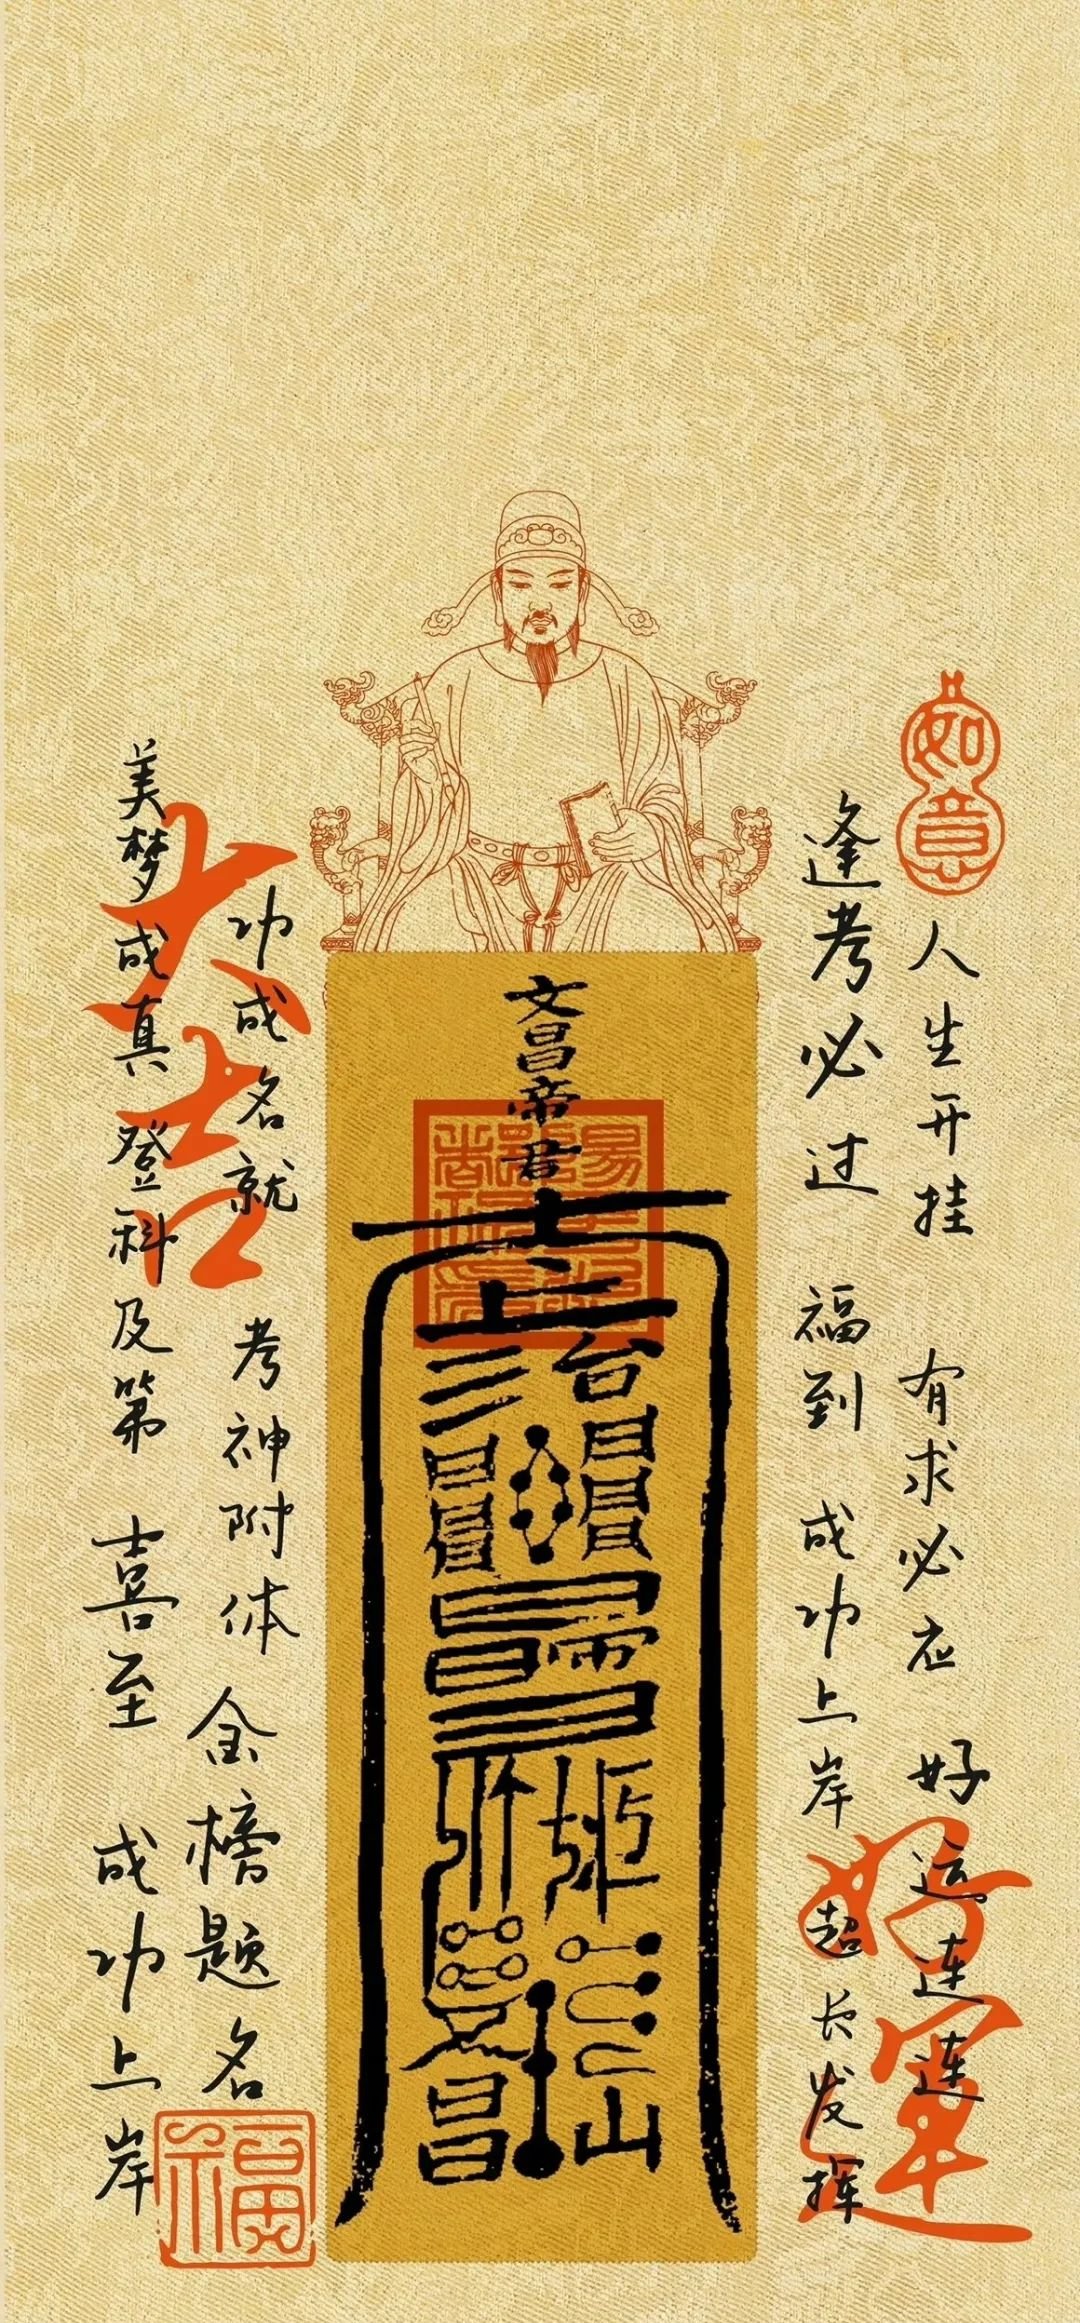 如意
人生开挂 有求必应 好运连连
逢考必过 福到 成功上岸 超长发挥
好运
文昌帝君
台
山
昌
大吉
功成名就 考神附体 金榜题名
美梦成真 登科及第 喜至 成功上岸
福